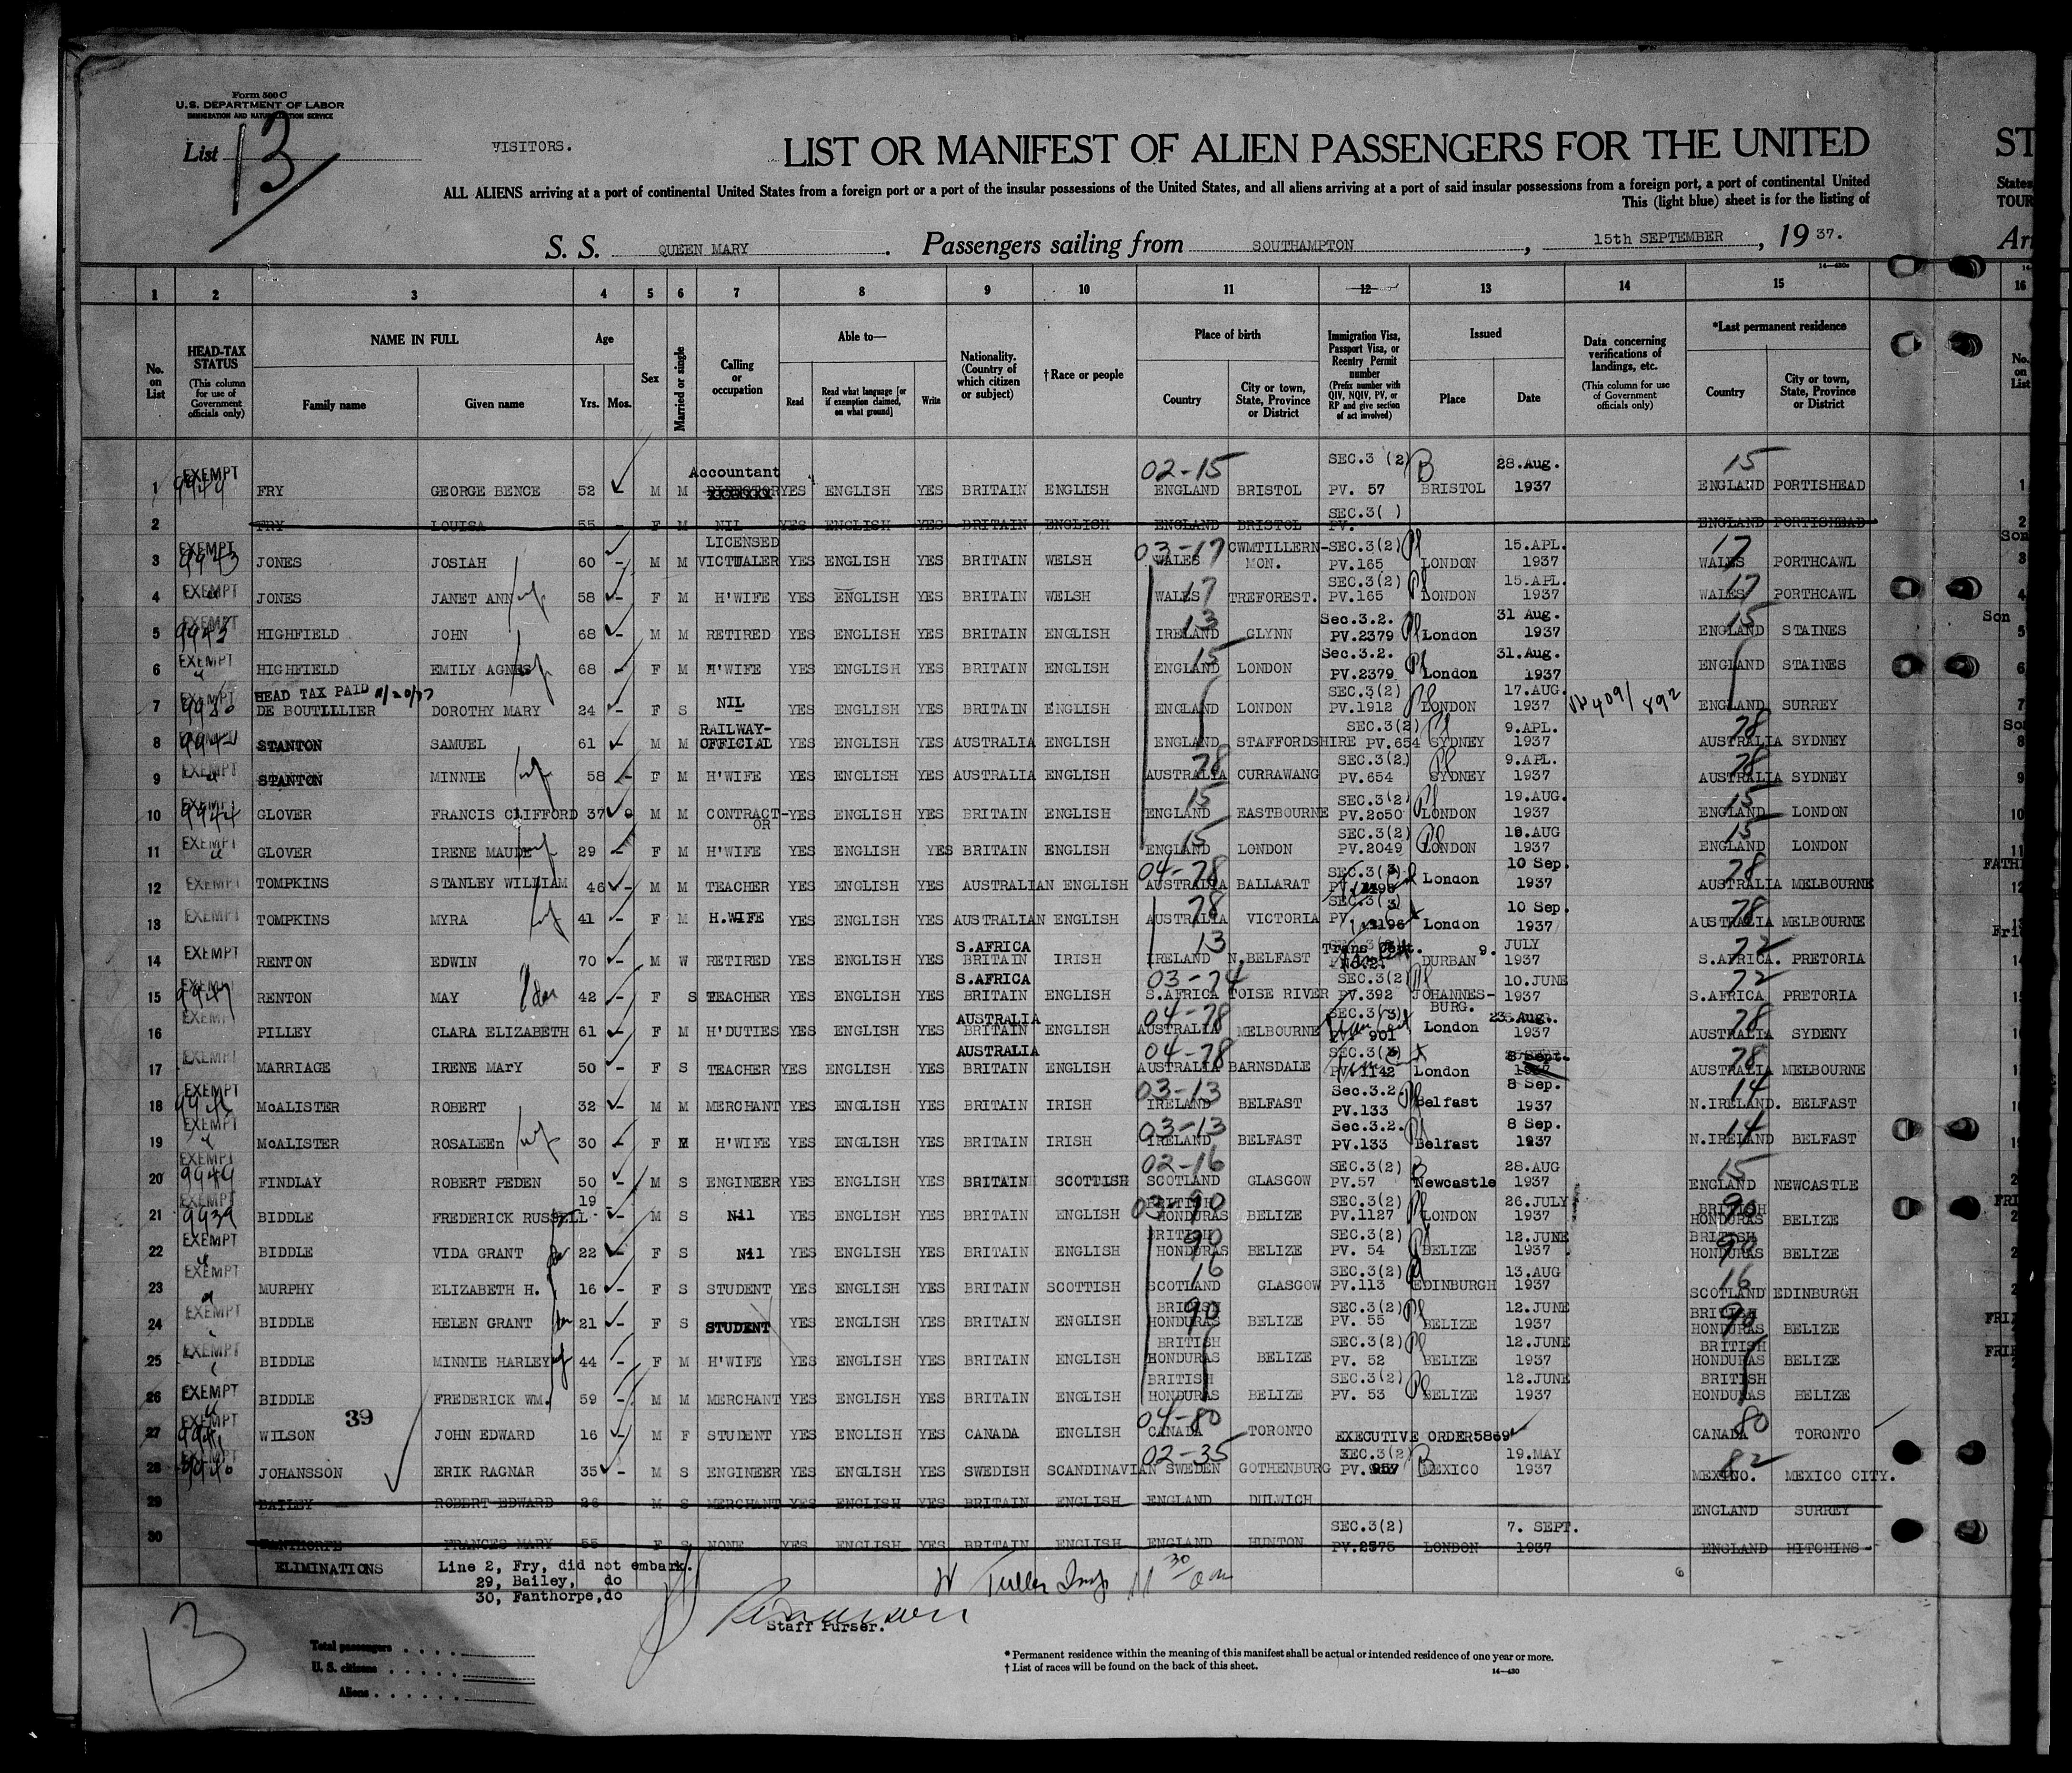 Form 500 C
U.S. DEPARTMENT OF LABOR
IMMIGRATION AND NATURALIZATION SERVICE
List 13
VISITORS.
LIST OR MANIFEST OF ALIEN PASSENGERS FOR THE UNITED ST
ALL ALIENS arriving at a port of continental United States from a foreign port or a port of the insular possessions of the United States, and all aliens arriving at a port of said insular possessions from a foreign port, a port of continental United States
This (light blue) sheet is for the listing of TOUR
S. S. QUEEN MARY. Passengers sailing from SOUTHAMPTON, 15th SEPTEMBER, 1937. Arr
1 2 3 4 5 6 7 8 9 10 11 12 13 14 15 16
No. on List
HEAD-TAX STATUS (This column for use of Government officials only)
NAME IN FULL Family name Given name
Age Yrs. Mos.
Sex
Married or single
Calling or occupation
Able to— Read Read what language [or if exemption claimed, on what ground] Write
Nationality. (Country of which citizen or subject)
†Race or people
Place of birth Country City or town, State, Province or District
Immigration Visa, Passport Visa, or Reentry Permit number (Prefix number with QIV, NQIV, PV, or RP and give section of act involved)
Issued Place Date
Data concerning verifications of landings, etc. (This column for use of Government officials only)
*Last permanent residence Country City or town, State, Province or District
No. on List
1 EXEMPT FRY GEORGE BENCE 52 M M Accountant YES ENGLISH YES BRITAIN ENGLISH 02-15 ENGLAND BRISTOL SEC.3 (2) PV. 57 BRISTOL 28.Aug. 1937 15 ENGLAND PORTISHEAD 1
2 FRY LOUISA 55 - F M NIL YES ENGLISH YES BRITAIN ENGLISH ENGLAND BRISTOL SEC.3( ) PV. ENGLAND PORTISHEAD 2
3 EXEMPT 9943 JONES JOSIAH 60 - M M LICENSED VICTUALER YES ENGLISH YES BRITAIN WELSH 03-17 WALES CWMTILLERN- MON. SEC.3(2) PV.165 LONDON 15.APL. 1937 17 WALES PORTHCAWL Son 3
4 EXEMPT JONES JANET ANN wf 58 - F M H'WIFE YES ENGLISH YES BRITAIN WELSH WALES 17 TREFOREST. SEC.3(2) PV.165 LONDON 15.APL. 1937 17 WALES PORTHCAWL 4
5 EXEMPT 9943 HIGHFIELD JOHN 68 - M M RETIRED YES ENGLISH YES BRITAIN ENGLISH 13 IRELAND GLYNN Sec.3.2. PV.2379 London 31 Aug. 1937 15 ENGLAND STAINES Son 5
6 EXEMPT HIGHFIELD EMILY AGNES wf 68 - F M H'WIFE YES ENGLISH YES BRITAIN ENGLISH 15 ENGLAND LONDON Sec.3.2. PV.2379 London 31.Aug. 1937 ENGLAND STAINES 6
7 HEAD TAX PAID 11/20/37 DE BOUTILLIER DOROTHY MARY 24 - F S NIL YES ENGLISH YES BRITAIN ENGLISH ENGLAND LONDON SEC.3(2) PV.1912 LONDON 17.AUG. 1937 409/892 ENGLAND SURREY 7
8 STANTON SAMUEL 61 - M M RAILWAY-OFFICIAL YES ENGLISH YES AUSTRALIA ENGLISH ENGLAND STAFFORDSHIRE SEC.3(2) PV.654 SYDNEY 9.APL. 1937 78 AUSTRALIA SYDNEY 8
9 EXEMPT STANTON MINNIE wf 58 - F M H'WIFE YES ENGLISH YES AUSTRALIA ENGLISH 78 AUSTRALIA CURRAWANG SEC.3(2) PV.654 SYDNEY 9.APL. 1937 78 AUSTRALIA SYDNEY 9
10 EXEMPT 9944 GLOVER FRANCIS CLIFFORD 37 M M CONTRACT-OR YES ENGLISH YES BRITAIN ENGLISH 15 ENGLAND EASTBOURNE SEC.3(2) PV.2050 LONDON 19.AUG. 1937 15 ENGLAND LONDON 10
11 EXEMPT GLOVER IRENE MAUDE wf 29 - F M H'WIFE YES ENGLISH YES BRITAIN ENGLISH 15 ENGLAND LONDON SEC.3(2) PV.2049 LONDON 18.AUG 1937 15 ENGLAND LONDON 11
12 EXEMPT TOMPKINS STANLEY WILLIAM 46 - M M TEACHER YES ENGLISH YES AUSTRALIAN ENGLISH 04-78 AUSTRALIA BALLARAT SEC.3(3) London 10 Sep. 1937 78 AUSTRALIA MELBOURNE 12
13 EXEMPT TOMPKINS MYRA wf 41 - F M H.WIFE YES ENGLISH YES AUSTRALIAN ENGLISH 78 AUSTRALIA VICTORIA SEC.3( 3) London 10 Sep. 1937 78 AUSTRALIA MELBOURNE
14 EXEMPT RENTON EDWIN 70 - M W RETIRED YES ENGLISH YES S.AFRICA BRITAIN IRISH 13 IRELAND N.BELFAST DURBAN 9. JULY 1937 72 S.AFRICA. PRETORIA 14
15 EXEMPT RENTON MAY dau 42 - F S TEACHER YES ENGLISH YES S.AFRICA BRITAIN ENGLISH 03-74 S.AFRICA TOISE RIVER SEC.3(2) PV.392 JOHANNES-BURG. 10.JUNE 1937 72 S.AFRICA PRETORIA
16 EXEMPT PILLEY CLARA ELIZABETH 61 - F M H'DUTIES YES ENGLISH YES AUSTRALIA BRITAIN ENGLISH 04-78 AUSTRALIA MELBOURNE SEC.3(3) 901 London 23.Aug. 1937 78 AUSTRALIA SYDENY
17 EXEMPT MARRIAGE IRENE MARY 50 - F S TEACHER YES ENGLISH YES AUSTRALIA BRITAIN ENGLISH 04-78 AUSTRALIA BARNSDALE PV.1142 London 8 Sept. 1937 78 AUSTRALIA MELBOURNE
18 EXEMPT McALISTER ROBERT 32 - M M MERCHANT YES ENGLISH YES BRITAIN IRISH 03-13 IRELAND BELFAST Sec.3.2. PV.133 Belfast 8 Sep. 1937 14 N.IRELAND. BELFAST
19 EXEMPT McALISTER ROSALEEn wf 30 - F M H'WIFE YES ENGLISH YES BRITAIN IRISH 03-13 IRELAND BELFAST Sec.3.2. PV.133 Belfast 8 Sep. 1937 14 N.IRELAND BELFAST
20 EXEMPT 9944 FINDLAY ROBERT PEDEN 50 - M S ENGINEER YES ENGLISH YES BRITAIN SCOTTISH 02-16 SCOTLAND GLASGOW SEC.3(2) PV.57 Newcastle 28.AUG 1937 15 ENGLAND NEWCASTLE
21 EXEMPT 9939 BIDDLE FREDERICK RUSSELL 19 - M S Nil YES ENGLISH YES BRITAIN ENGLISH 03-90 BRITISH HONDURAS BELIZE SEC.3(2) PV.1127 LONDON 26.JULY 1937 90 BRITISH HONDURAS BELIZE
22 EXEMPT BIDDLE VIDA GRANT 22 - F S Nil YES ENGLISH YES BRITAIN ENGLISH 90 BRITISH HONDURAS BELIZE SEC.3(2) PV. 54 BELIZE 12.JUNE 1937 90 BRITISH HONDURAS BELIZE
23 EXEMPT MURPHY ELIZABETH H. 16 - F S STUDENT YES ENGLISH YES BRITAIN SCOTTISH 16 SCOTLAND GLASGOW SEC.3(2) PV.113 EDINBURGH 13.AUG 1937 16 SCOTLAND EDINBURGH
24 EXEMPT BIDDLE HELEN GRANT 21 - F S STUDENT YES ENGLISH YES BRITAIN ENGLISH 90 BRITISH HONDURAS BELIZE SEC.3(2) PV. 55 BELIZE 12.JUNE 1937 90 BRITISH HONDURAS BELIZE
25 EXEMPT BIDDLE MINNIE HARLEY wf 44 - F M H'WIFE YES ENGLISH YES BRITAIN ENGLISH BRITISH HONDURAS BELIZE SEC.3(2) PV. 52 BELIZE 12.JUNE 1937 BRITISH HONDURAS BELIZE
26 EXEMPT BIDDLE FREDERICK WM. 59 - M M MERCHANT YES ENGLISH YES BRITAIN ENGLISH BRITISH HONDURAS BELIZE SEC.3(2) PV. 53 BELIZE 12.JUNE 1937 BRITISH HONDURAS BELIZE
39
27 EXEMPT WILSON JOHN EDWARD 16 - M F STUDENT YES ENGLISH YES CANADA ENGLISH 04-80 CANADA TORONTO EXECUTIVE ORDER5869 80 CANADA TORONTO
28 EXEMPT JOHANSSON ERIK RAGNAR 35 - M S ENGINEER YES ENGLISH YES SWEDISH SCANDINAVIAN 02-35 SWEDEN GOTHENBURG SEC.3(2) MEXICO 19.MAY 1937 82 MEXICO. MEXICO CITY.
29 BAILEY ROBERT EDWARD 26 M S MERCHANT YES ENGLISH YES BRITAIN ENGLISH ENGLAND DULWICH ENGLAND SURREY
30 FANTHORPE FRANCES MARY 55 F S NONE YES ENGLISH YES BRITAIN ENGLISH ENGLAND HUNTON SEC.3(2) PV.2375 LONDON 7. SEPT. 1937 ENGLAND HITCHINS
ELIMINATIONS Line 2, Fry, did not embark.
29, Bailey, do
30, Fanthorpe, do
Staff Purser.
13
Total passengers
U. S. citizens
Aliens
* Permanent residence within the meaning of this manifest shall be actual or intended residence of one year or more.
† List of races will be found on the back of this sheet.
14—430